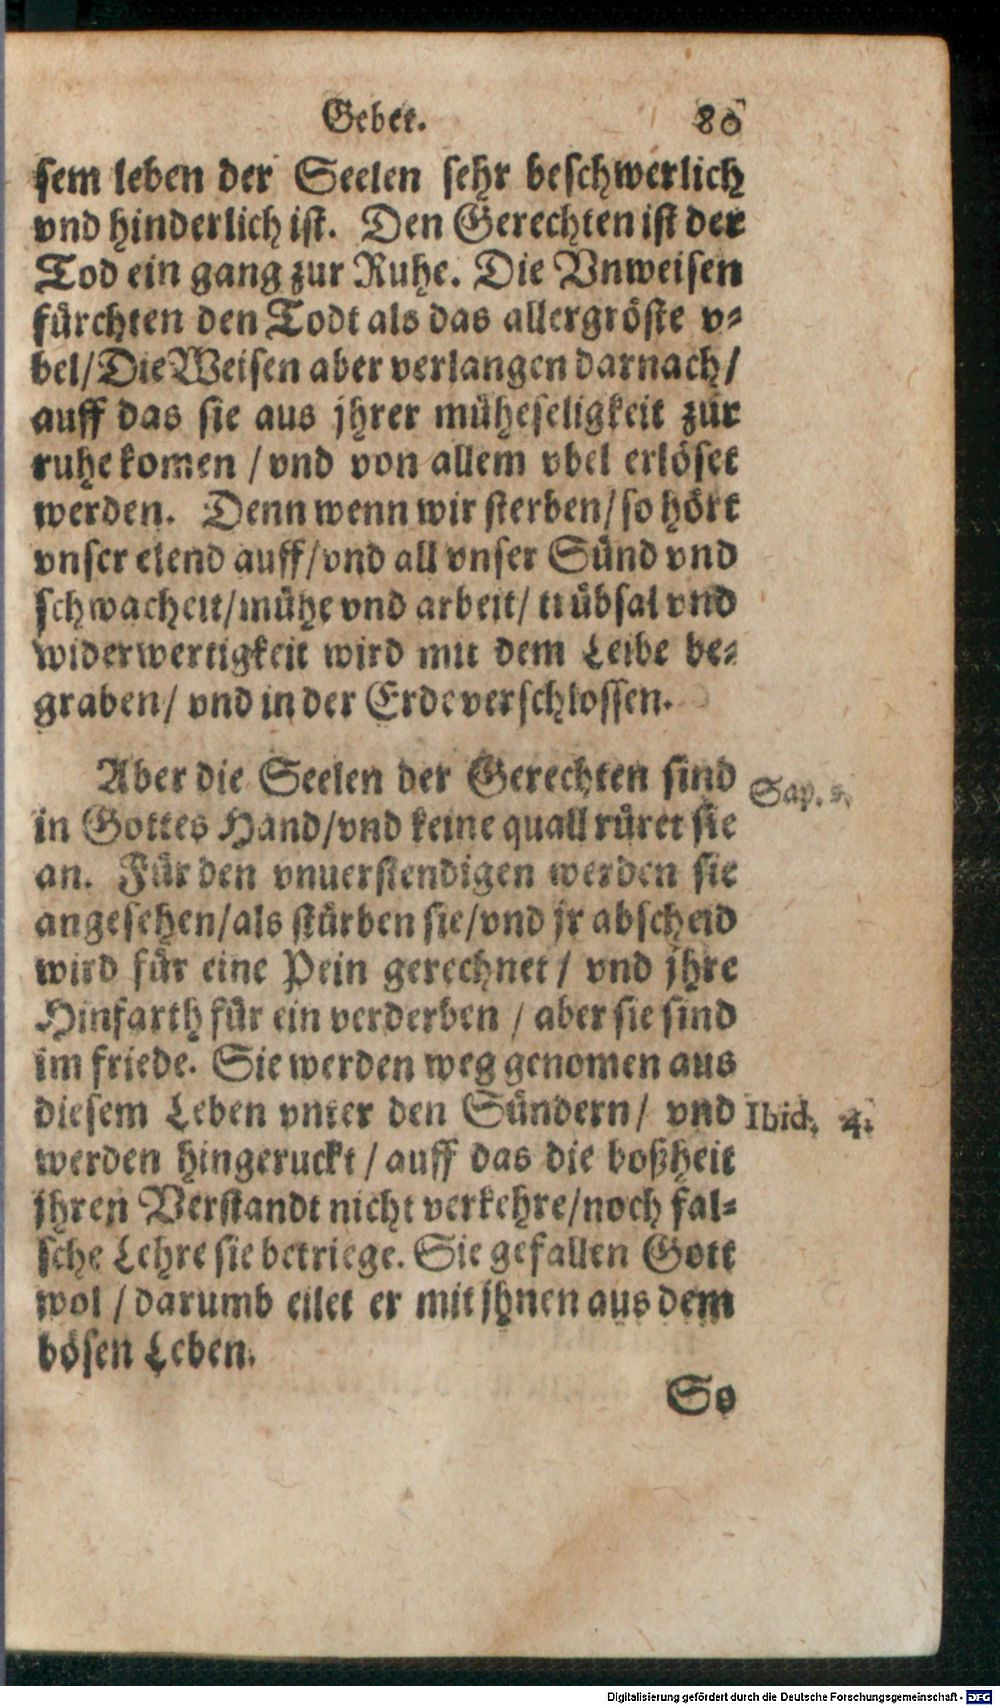 Gebet. 80
sem leben der Seelen sehr beschwerlich
vnd hinderlich ist. Den Gerechten ist der
Tod ein gang zur Ruhe. Die Vnweisen
fürchten den Todt als das allergröste v-
bel/Die Weisen aber verlangen darnach/
auff das sie aus jhrer müheseligkeit zur
ruhe komen / vnd von allem vbel erlöset
werden. Denn wenn wir sterben/so hört
vnser elend auff/vnd all vnser Sünd vnd
schwacheit/mühe vnd arbeit/ trübsal vnd
widerwertigkeit wird mit dem Leibe be-
graben/ vnd in der Erde verschlossen.
Aber die Seelen der Gerechten sind Sap.
in Gottes Hand/vnd keine quall rüret sie
an. Für den vnuerstendigen werden sie
angesehen/als stürben sie/vnd jr abscheid
wird für eine Pein gerechnet / vnd jhre
Hinfarth für ein verderben / aber sie sind
im friede. Sie werden weg genomen aus
diesem Leben vnter den Sündern/ vnd Ibid. 4.
werden hingeruckt / auff das die boßheit
jhren Verstandt nicht verkehre/noch fal-
sche Lehre sie betriege. Sie gefallen Gott
wol / darumb eilet er mit jhnen aus dem
bösen Leben.
So
Digitalisierung gefördert durch die Deutsche Forschungsgemeinschaft - DFG